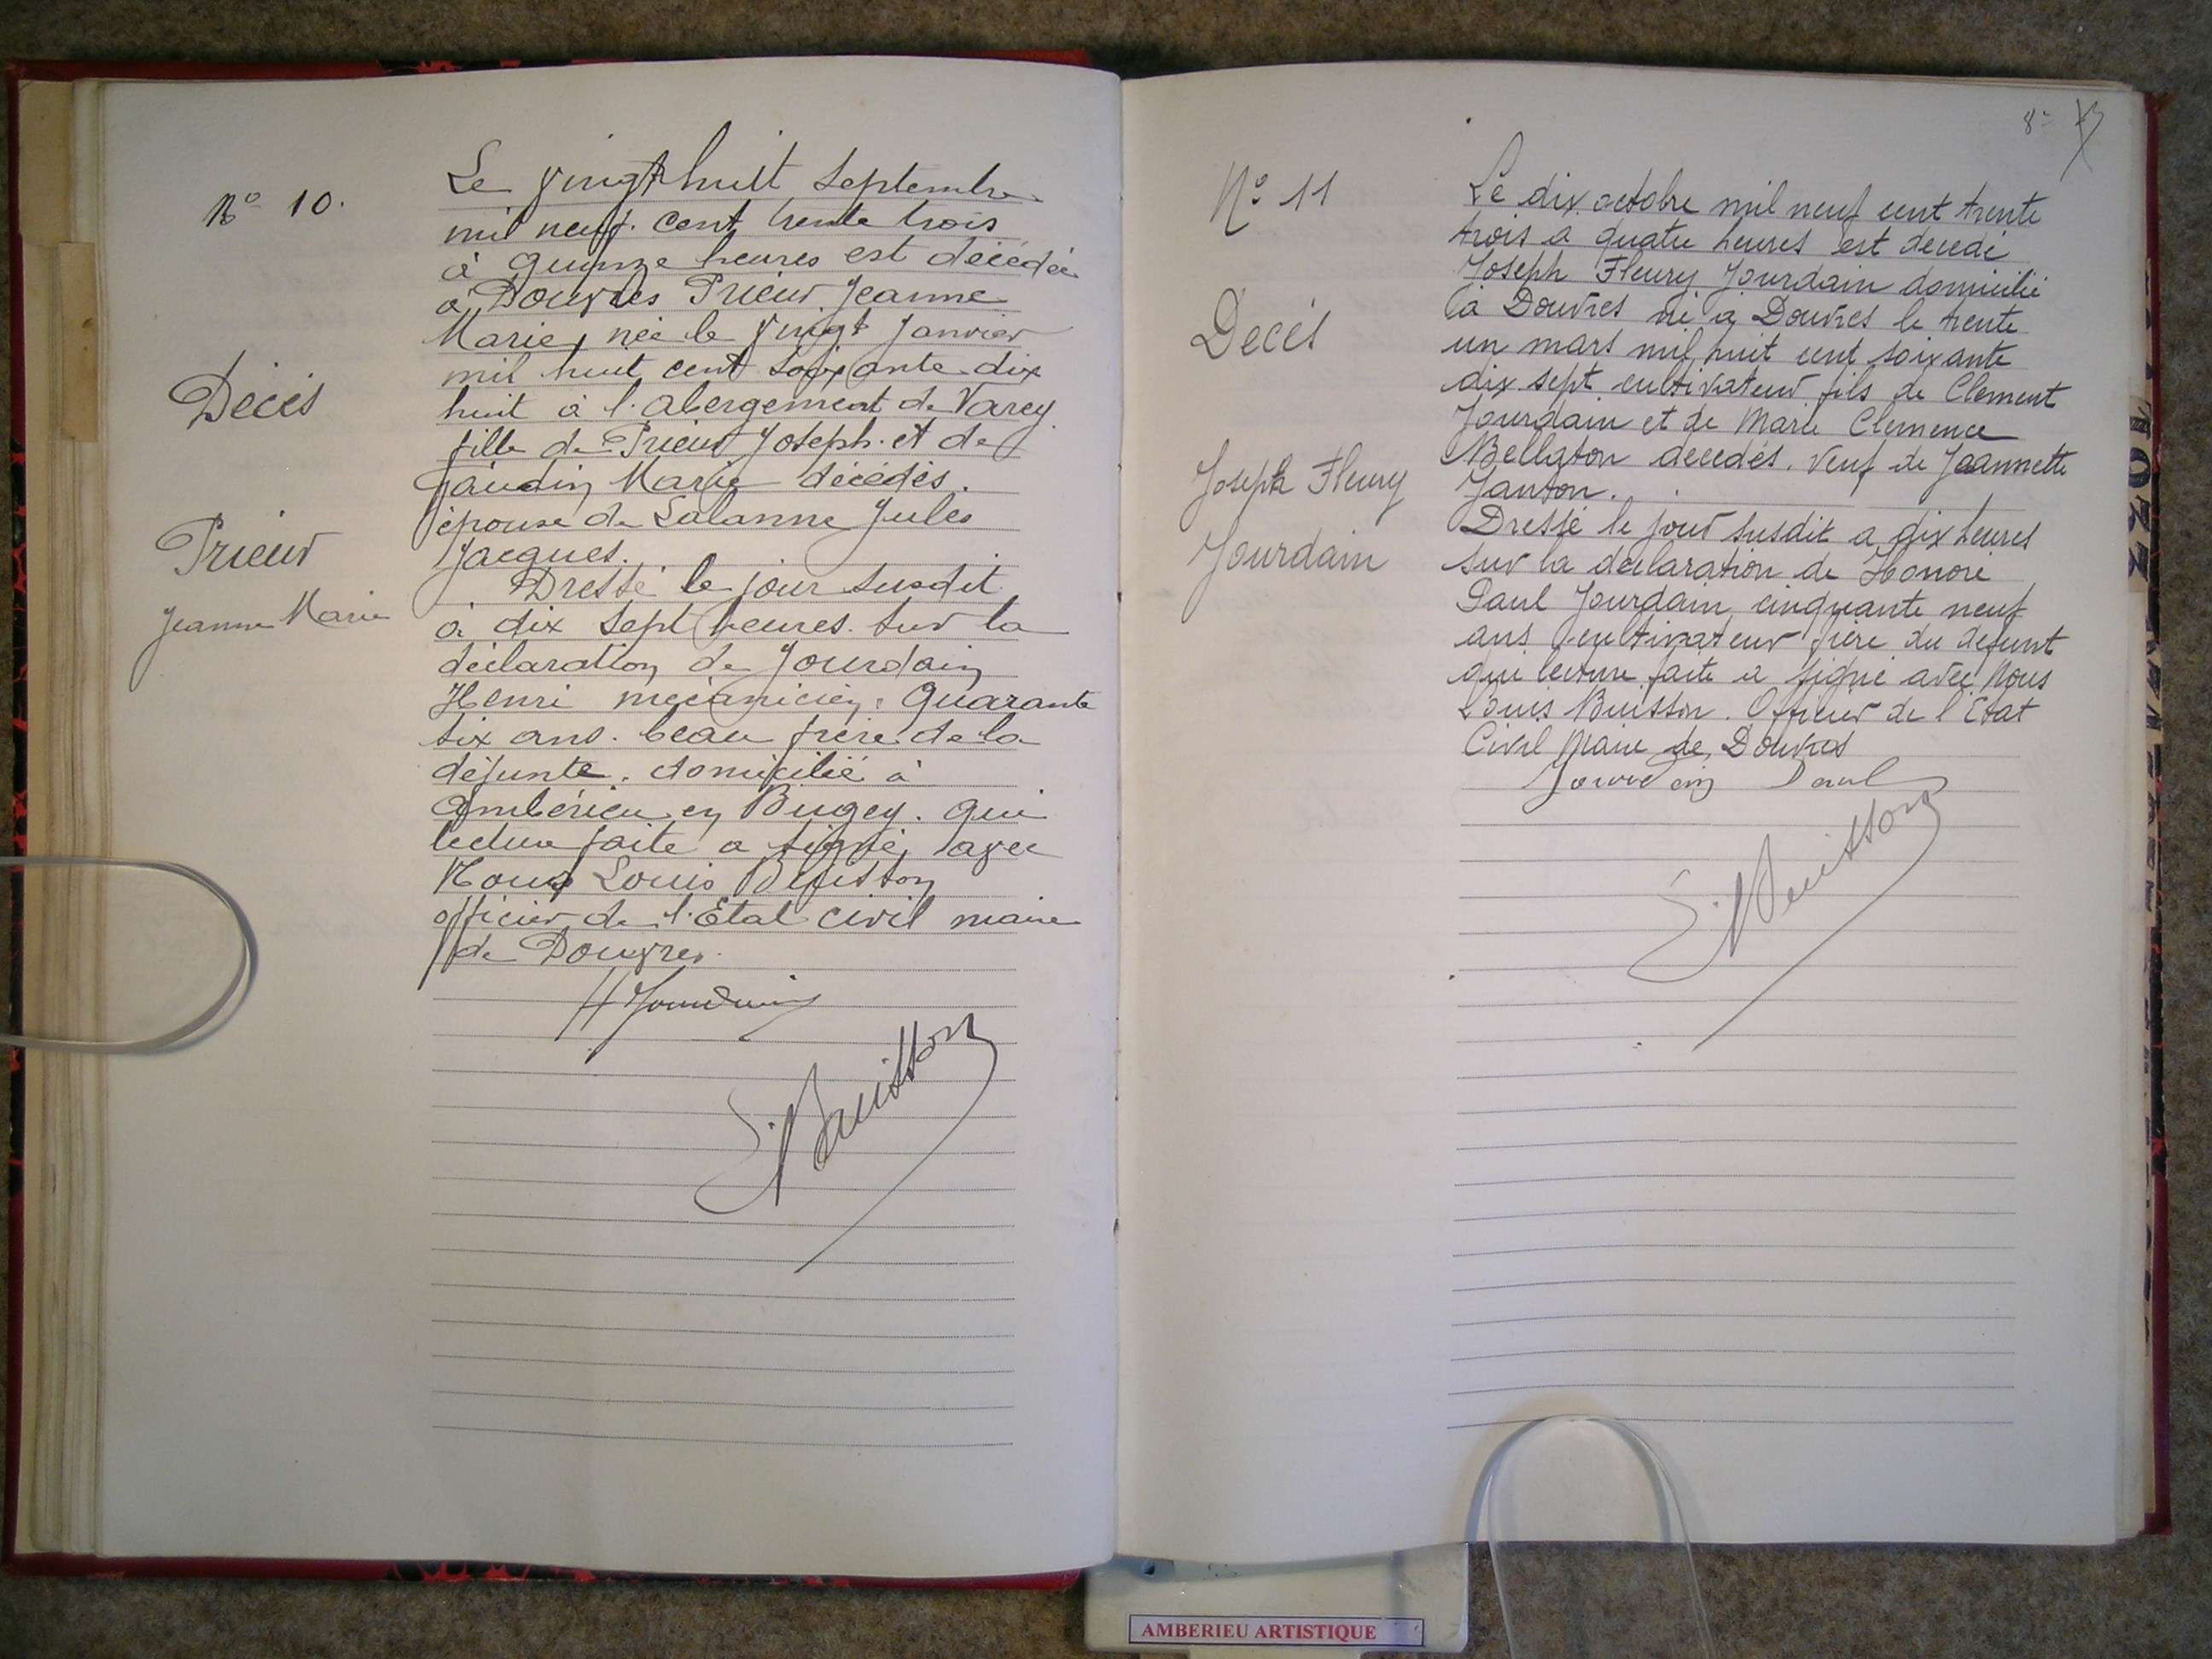 N° 10.
Décès
Prieur
Jeanne Marie
Le vingt huit Septembre
mil neuf. cent trente trois
à quinze heures est décédée
à Douvres Prieur Jeanne
Marie, née le vingt janvier
mil huit cent soixante dix
huit à l'abergement de Varey
fille de Prieur Joseph. et de
Gaudin Marie décédés.
épouse de Lalanne Jules
Jacques.
Dressé le jour susdit
à dix sept heures. sur la
déclaration de Jourdain
Henri mécanicien, quarante
six ans. beau frère de la
défunte. domicilié à
Ambérieu en Bugey. qui
lecture faite a signé, avec
Nous Louis Buisson
officier de l'Etat civil maire
de Douvres.
H Jourdain
L. Buisson
8
N° 11
Decés
Joseph Fleury
Jourdain
Le dix octobre mil neuf cent trente
trois a quatre heures est decedé
Joseph Fleury Jourdain domicilié
à Douvres né à Douvres le trente
un mars mil huit cent soixante
dix sept cultivateur fils de Clement
Jourdain et de Marie Clemence
Bellaton decedés. Veuf de Jeannette
Janton.
Dressé le jour susdit a dix heures
sur la declaration de Honoré
Paul Jourdain cinquante neuf
ans cultivateur frère du defunt
qui lecture faite a signé avec Nous
Louis Buisson. Officier de l'Etat
Civil Maire de Douvres
Jourdain Paul
L. Buisson
AMBERIEU ARTISTIQUE